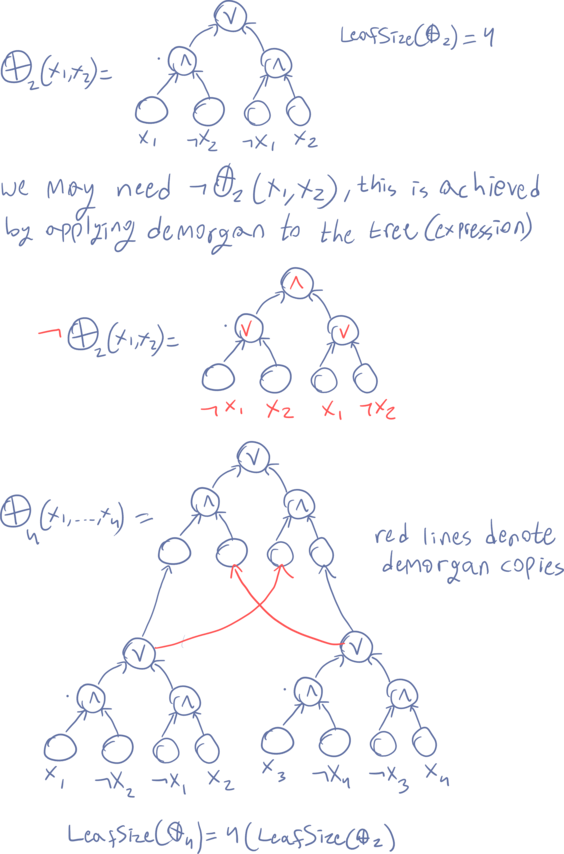 ∨
LeafSize(⊕₂) = 4
⊕₂(x₁,x₂) =
∧ ∧
x₁ ¬x₂ ¬x₁ x₂
we may need ¬⊕₂(x₁,x₂), this is achieved
by applying demorgan to the tree (expression)
∧
¬⊕₂(x₁,x₂) =
∨ ∨
¬x₁ x₂ x₁ ¬x₂
∨
⊕₄(x₁,...,x₄) =
∧ ∧
red lines denote
demorgan copies
∨ ∨
∧ ∧ ∧ ∧
x₁ ¬x₂ ¬x₁ x₂ x₃ ¬x₄ ¬x₃ x₄
LeafSize(⊕₄) = 4(LeafSize(⊕₂)